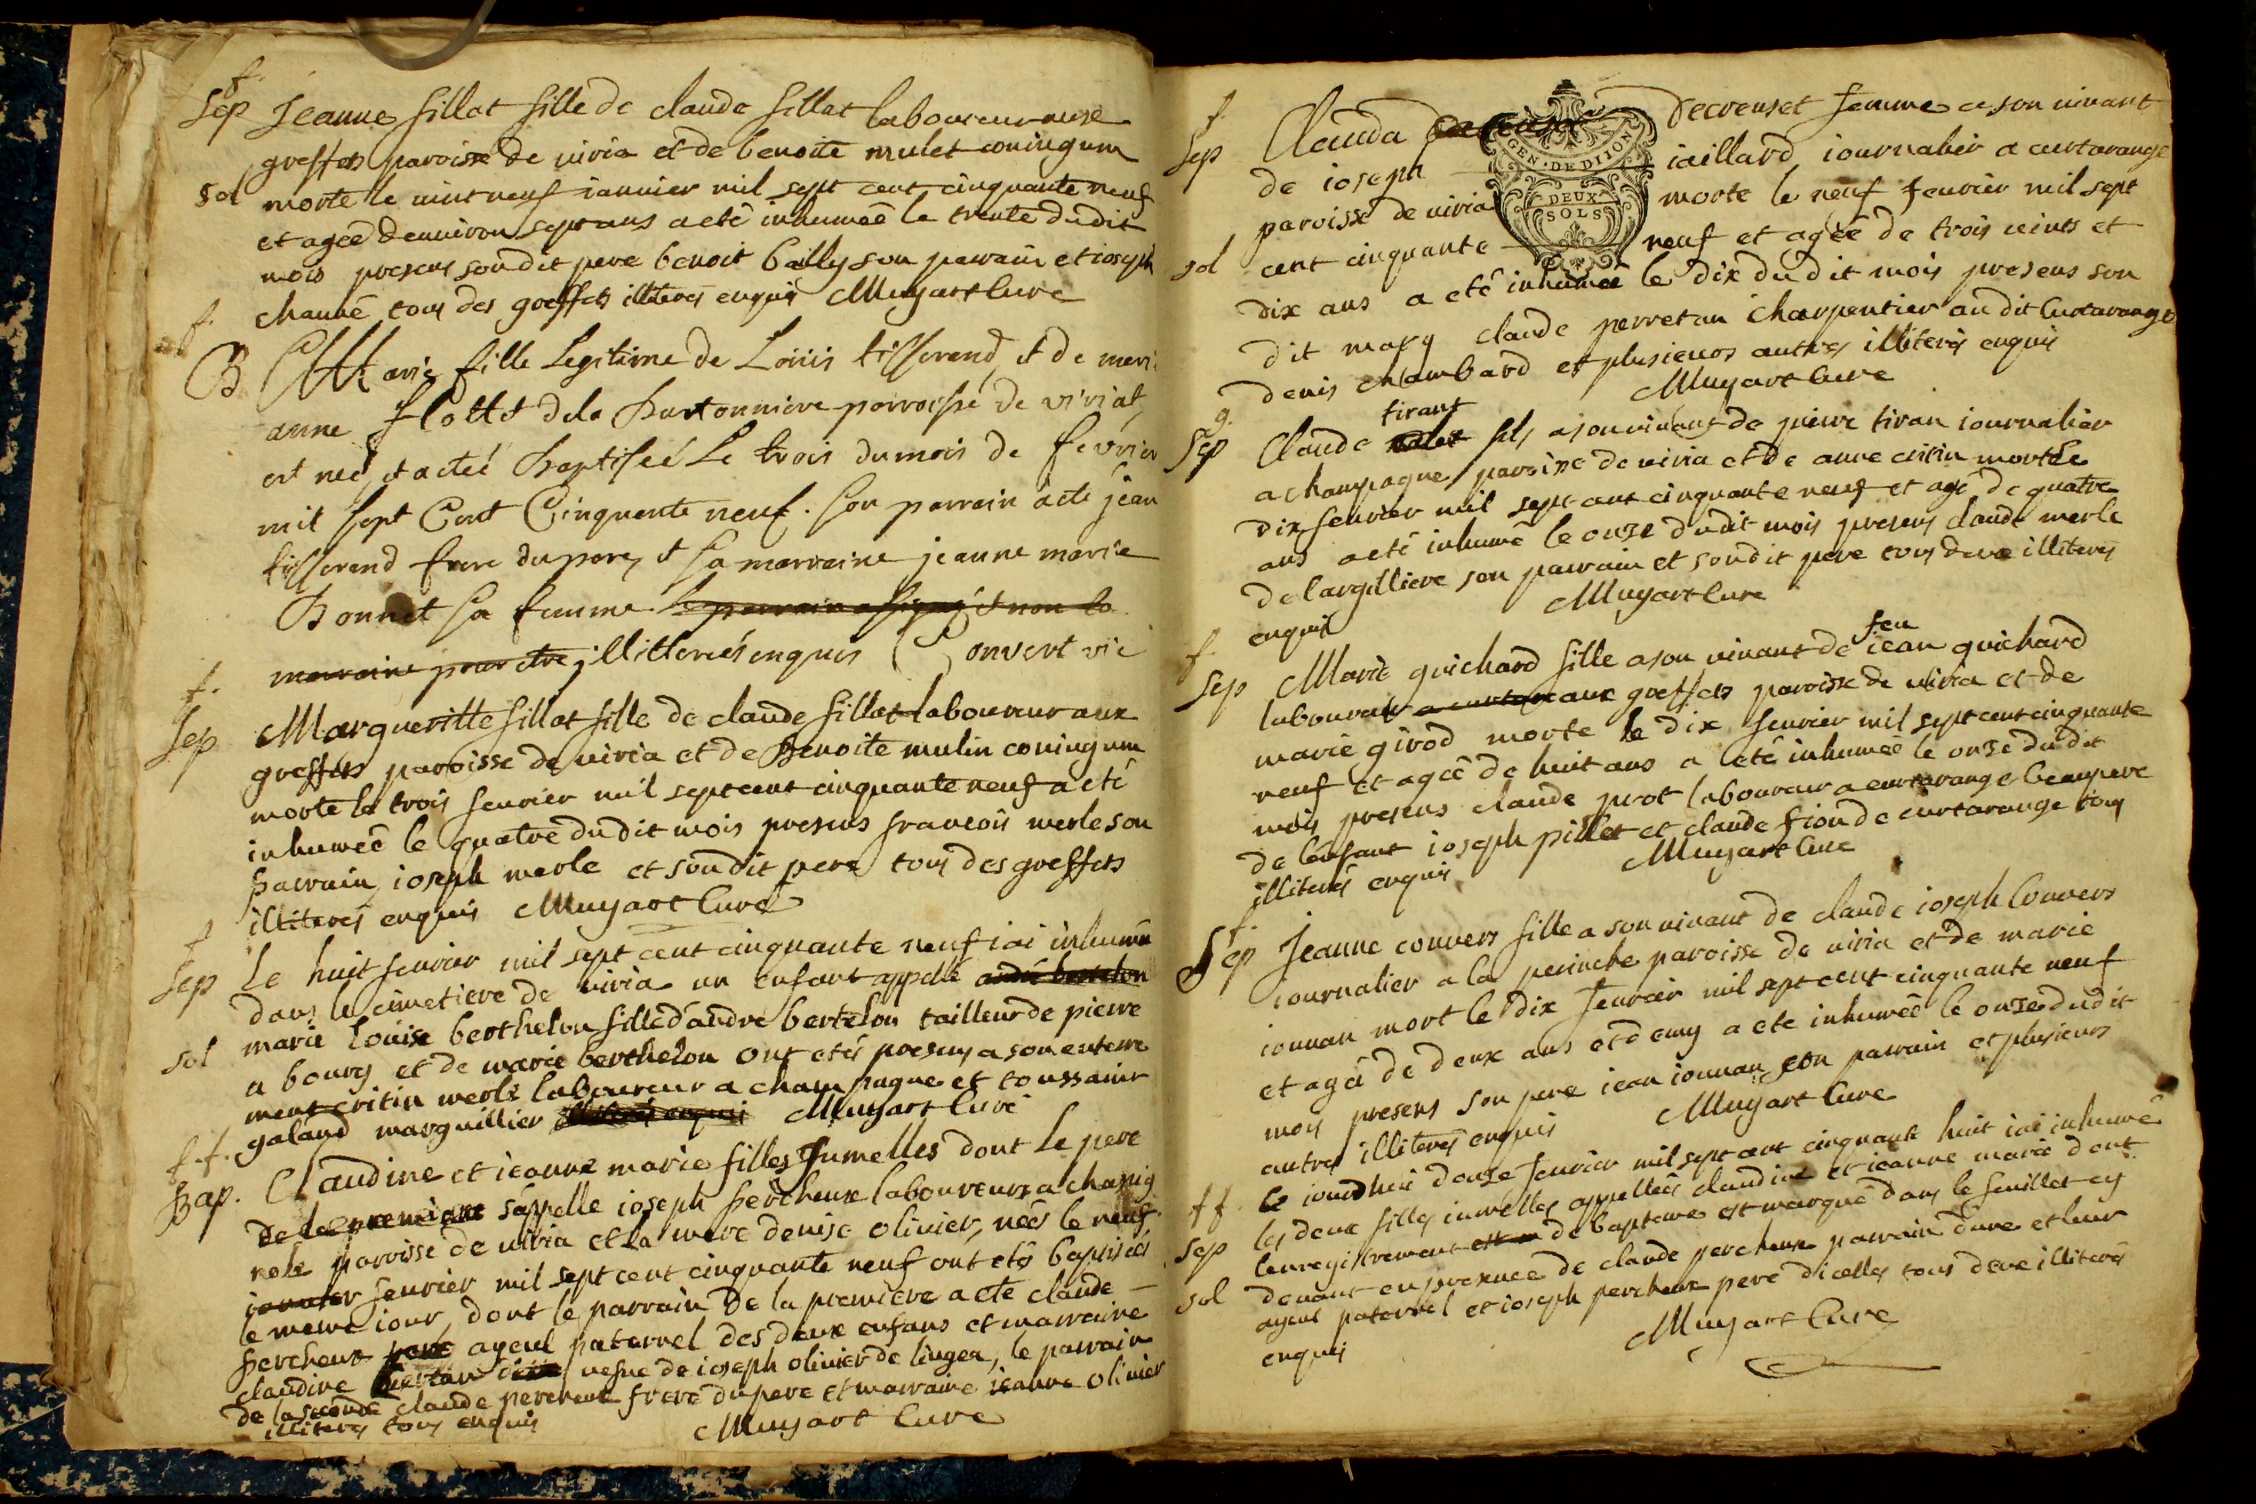 f.
Sep Jeanne fillat fille de claude fillat laboureur aux
greffets paroisse de viria et de benoite mulet coniugum
sol morte le vint neuf ianvier mil sept cent cinquante neuf
et ageé denviron sept ans a eté inhumeé le trente du dit
mois presens son dit pere benoit bailly son parain et ioseph
chauvé tous des greffets illiterés enquis Muyart Curé
f.
B Marie fille Legitime de Loüis tisserend, et de mari
anne flottet dela Bartonniere parroisse de viriat,
est neé, et a eteé Baptiseé Le trois du mois de fevrier
mil sept Cent Cinquente neuf. son parrain a ete jean
tisserend frere du pere, et sa marraine jeanne marie
Bonnet sa femme le parrain a signé et non la
marraine pour etre illitterés enquis Convert vic
f.
Sep Margueritte fillat fille de claude fillat laboureur aux
greffets paroisse de viria et de Benoite mulin coniugum
morte le trois fevrier mil sept cent cinquante neuf a eté
inhumeé le quatre du dit mois presens francois merle son
parrain, ioseph merle et son dit pere tous des greffets
illiterés enquis Muyart Curé
f
Sep Le huit fevrier mil sept cent cinquante neuf iai inhumé
dans le cimetiere de viria un enfant appellé andré bertelon
sol marie louise berthelon fille d'andre bertelon tailleur de pierre
a bourg et de marie berthelon ont etés presens a son enterre
ment critin merle laboureur a champagne et toussaint
galand marguillier illiterés enquis Muyart Curé
f.f.
Bap. Claudine et ieanne marie filles Jumelles dont le pere
de la premiere s'appelle ioseph percheux laboureur a chanig
role paroisse de viria et la mere denise olivier, nées le neuf
ianvier fevrier mil sept cent cinquante neuf ont etés baptisées
le meme iour, dont le parrain de la premiere a ete claude
percheux pere ayeul paternel des deux enfans et marraine
claudine vefve de ioseph olivier de lingea, le parrain
de la seconde claude percheux frere du pere et marraine ieanne olivier
illiterés tous enquis Muyart Curé
f.
Sep Clauda Decreuset femme a son vivant
de ioseph iaillard iournalier a curtarange
paroisse de viria morte le neuf fevrier mil sept
sol cent cinquante neuf et ageé de trois vints et
dix ans a eté inhumeé le dix du dit mois presens son
dit mary claude perretan charpentier au dit Curtarange
denis chambard et plusieurs autres illiterés enquis
Muyart Curé
GEN. DE DIJON
DEUX
SOLS
g.
tirant
Sep Claude fils a son vivant de pierre tiran iournalier
a champagne paroisse de viria et de anne critin mort le
dix fevrier mil sept cent cinquante neuf et agé de quatre
ans a eté inhumé le onze du dit mois presens claude merle
de largilliere son parrain et son dit pere tous deux illiterés
enquis Muyart Curé
f.
feu
Sep Marie guichard fille a son vivant de iean guichard
laboureur aux greffets paroisse de viria et de
marie girod morte le dix fevrier mil sept cent cinquante
neuf et ageé de huit ans a eté inhumeé le onze du dit
mois presens claude prot laboureur a curtarange beaupere
de l'enfant ioseph pillet et claude fion de curtarange tous
illiterés enquis Muyart Curé
f.
Sep Jeanne convers fille a son vivant de claude ioseph Convers
iournalier a la perinche paroisse de viria et de marie
iouvan mort le dix fevrier mil sept cent cinquante neuf
et ageé de deux ans et demy a ete inhumeé le onze du dit
mois presens son pere iean iouvan son parrain et plusieurs
autres illiterés enquis Muyart Curé
f f. le iourdhui douze fevrier mil sept cent cinquante huit iai inhumé
les deux filles iumelles appelleés claudine et ieanne marie dont
sep lenregistrement de bapteme est marqué dans le feuillet cy
sol devant en presence de claude percheux parrain dune et leur
ayeul paternel et ioseph percheux pere dicelles tous deux illiterés
enquis Muyart Curé